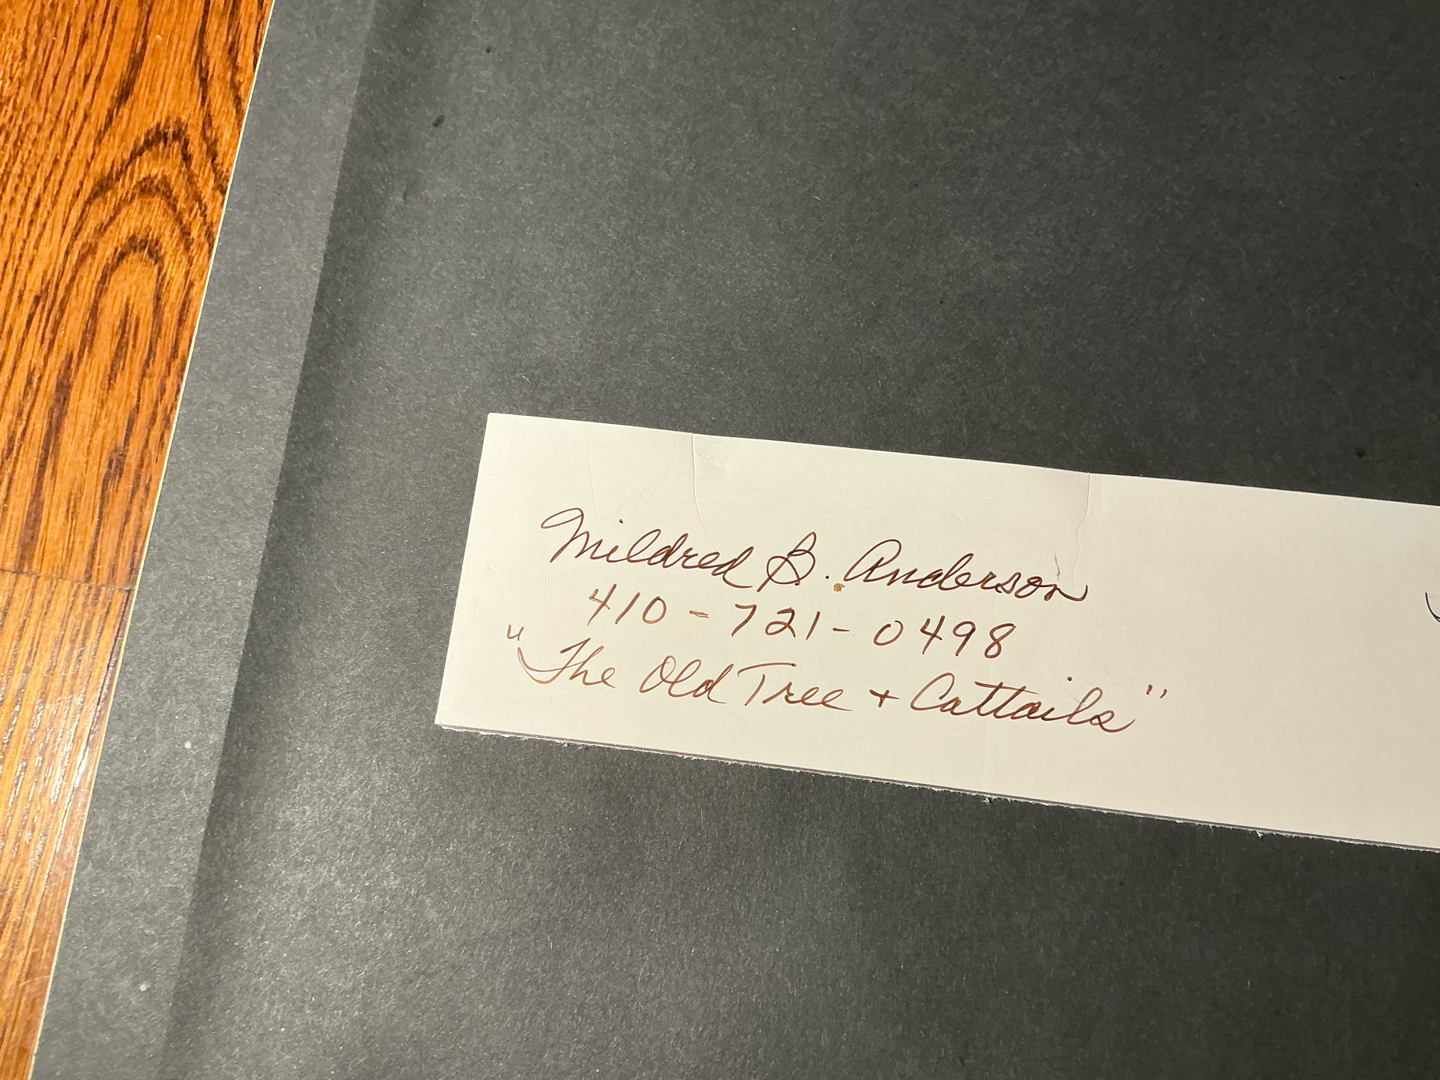 Mildred B. Anderson
410-721-0498
"The Old Tree + Cattails"